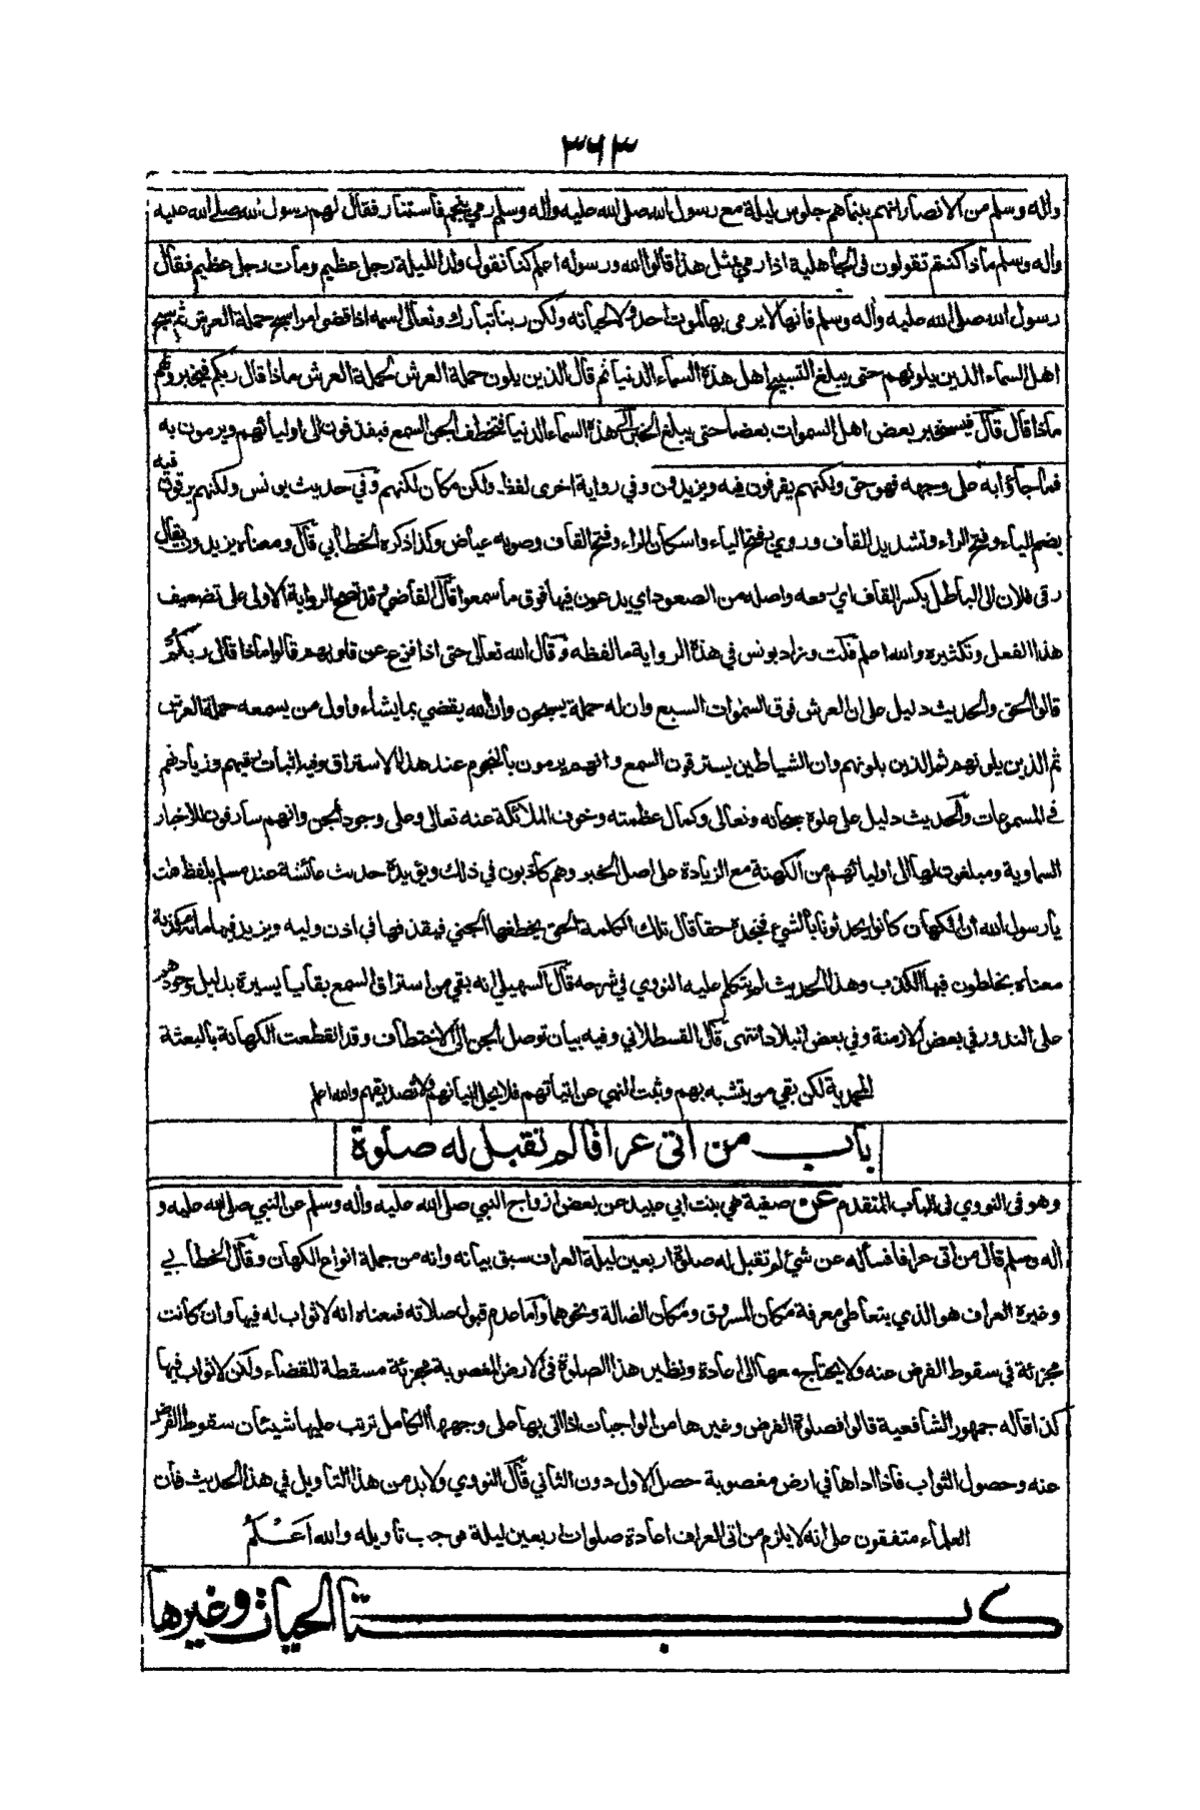 ٣٦٣
وآله وسلم من الانصار انهم بينما هم جلوس ليلة مع رسول الله صلى الله عليه وآله وسلم رمي بنجم فاستنار فقال لهم رسول الله صلى الله عليه
وآله وسلم ماذا كنتم تقولون فى الجاهلية اذا رمي بمثل هذا قالوا الله ورسوله اعلم كنا نقول ولد الليلة رجل عظيم ومات رجل عظيم فقال
رسول الله صلى الله عليه وآله وسلم فانها لا يرمى بها لموت احد ولا لحياته ولكن ربنا تبارك وتعالى اسمه اذا قضى امرا سبح حملة العرش ثم سبح
اهل السماء الذين يلونهم حتى يبلغ التسبيح اهل هذه السماء الدنيا ثم قال الذين يلون حملة العرش لحملة العرش ماذا قال ربكم فيخبرونهم
ماذا قال قال فيستخبر بعض اهل السموات بعضا حتى يبلغ الخبر هذه السماء الدنيا فتخطف الجن السمع فيقذفون الى اوليائهم ويرمون به
فما جاؤا به على وجهه فهو حق ولكنهم يقرفون فيه ويزيدون وفي رواية اخرى لفظ ولكن مكان لكنهم وفي حديث يونس ولكنهم يرقون فيه
بضم الياء وفتح الراء وتشديد القاف وروي بفتح الياء واسكان الراء وفتح القاف وصوبه عياض وكذا ذكره الخطابي قال ومعناه يزيدون يقال
رقى فلان الى الباطل بكسر القاف اي رفعه واصله من الصعود اي يدعون فيها فوق ما سمعوا قال القاضي وقد تصح الرواية الاولى على تضعيف
هذا الفعل وتكثيره والله اعلم قلت وزاد يونس في هذه الرواية ما لفظه وقال الله تعالى حتى اذا فزع عن قلوبهم قالوا ماذا قال ربكم
قالوا الحق والحديث دليل على ان العرش فوق السموات السبع وان له حملة يسبحون وان الله يقضي بما يشاء واول من يسمعه حملة العرش
ثم الذين يلونهم ثم الذين يلونهم وان الشياطين يسترقون السمع وانهم يرمون بالنجوم عند هذا الاستراق وفيه اثبات رقيهم وزيادتهم
في المسموعات والحديث دليل على علوه سبحانه وتعالى وكمال عظمته وخوف الملائكة عنه تعالى وعلى وجود الجن وانهم سارقون للاخبار
السماوية ومبلغون لها الى اوليائهم من الكهنة مع الزيادة على اصل الخبر وهم كاذبون في ذلك ويؤيده حديث عائشة عند مسلم بلفظ قلت
يا رسول الله ان الكهان كانوا يحدثوننا بالشيء فنجده حقا قال تلك الكلمة الحق يخطفها الجني فيقذفها في اذن وليه ويزيد فيها مائة كذبة
معناه يخلطون فيها الكذب وهذا الحديث لم يتكلم عليه النووي في شرحه قال السهيلي انه بقي من استراق السمع بقايا يسيرة بدليل وجودهم
على الندور في بعض الازمنة وفي بعض البلاد انتهى قال القسطلاني وفيه بيان توصل الجن الى الاختطاف وقد انقطعت الكهانة بالبعثة
المحمدية لكن بقي من يتشبه بهم وثبت النهي عن اتيانهم فلا يحل اتيانهم ولا تصديقهم والله اعلم
باب من اتى عرافا لم تقبل له صلوة
وهو فى النووي في الباب المتقدم عن صفية هي بنت ابي عبيد عن بعض ازواج النبي صلى الله عليه وآله وسلم عن النبي صلى الله عليه و
آله وسلم قال من اتى عرافا فسأله عن شيء لم تقبل له صلوة اربعين ليلة العراف سبق بيانه وانه من جملة انواع الكهان وقال الخطابي
وغيره العراف هو الذي يتعاطى معرفة مكان المسروق ومكان الضالة ونحوهما واما عدم قبول صلاته فمعناه انه لا ثواب له فيها وان كانت
مجزئة في سقوط الفرض عنه ولا يحتاج معها الى اعادة ونظير هذا الصلوة فى الارض المغصوبة مجزئة مسقطة للقضاء ولكن لا ثواب فيها
كذا قاله جمهور الشافعية قالوا فصلوة الفرض وغيرها من الواجبات اذا اتى بها على وجهها الكامل ترتب عليها شيئان سقوط الفرض
عنه وحصول الثواب فاذا اداها في ارض مغصوبة حصل الاول دون الثاني قال النووي ولا بد من هذا التأويل في هذا الحديث فان
العلماء متفقون على انه لا يلزم من اتى العراف اعادة صلوات اربعين ليلة فوجب تاويله والله اعلم
كتاب الحيات وغيرها